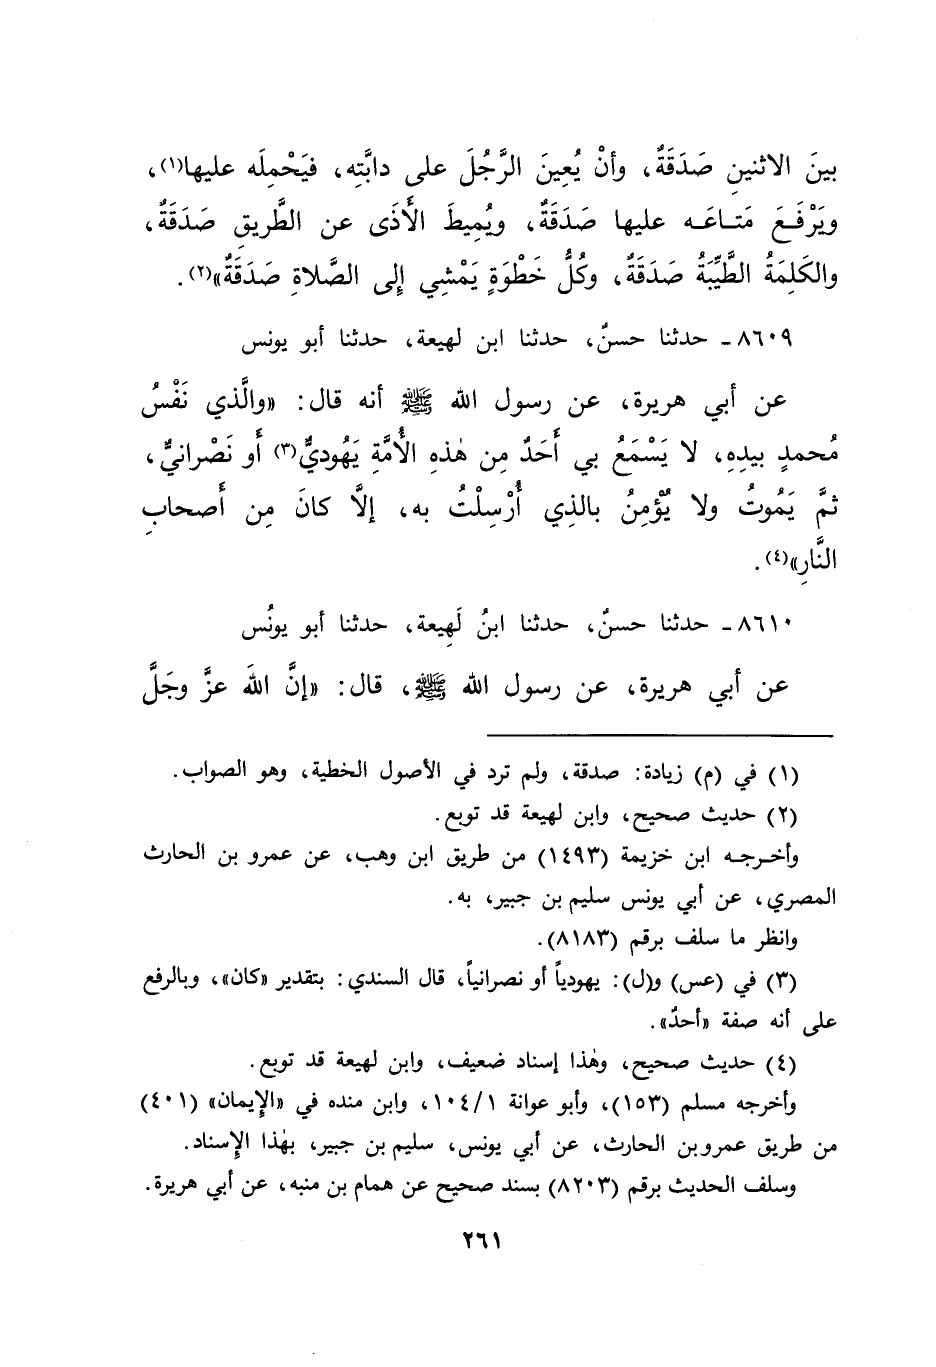 بينَ الاثنينِ صَدَقَةٌ، وأنْ يُعِينَ الرَّجُلَ على دابَّتِه، فيَحْمِلَه عليها(١)،
ويَرْفَعَ مَتاعَه عليها صَدَقَةٌ، ويُمِيطَ الأَذَى عن الطَّريقِ صَدَقَةٌ،
والكَلِمَةُ الطَّيِّبَةُ صَدَقَةٌ، وكُلُّ خَطْوَةٍ يَمْشِي إلى الصَّلاةِ صَدَقَةٌ»(٢).
٨٦٠٩ ـ حدثنا حسنٌ، حدثنا ابن لهيعة، حدثنا أبو يونس
عن أبي هريرة، عن رسول الله ﷺ أنه قال: «والَّذي نَفْسُ
مُحمدٍ بيدِه، لا يَسْمَعُ بي أَحَدٌ مِن هٰذه الأُمَّةِ يَهُوديٌّ(٣) أو نَصْرانيٌّ،
ثمَّ يَمُوتُ ولا يُؤْمِنُ بالذِي أُرْسِلْتُ به، إلَّا كانَ مِن أَصحابِ
النَّارِ»(٤).
٨٦١٠ ـ حدثنا حسنٌ، حدثنا ابنُ لَهِيعة، حدثنا أبو يونُس
عن أبي هريرة، عن رسول الله ﷺ، قال: «إنَّ اللهَ عزَّ وجَلَّ
(١) في (م) زيادة: صدقة، ولم ترد في الأصول الخطية، وهو الصواب.
(٢) حديث صحيح، وابن لهيعة قد توبع.
وأخرجه ابن خزيمة (١٤٩٣) من طريق ابن وهب، عن عمرو بن الحارث
المصري، عن أبي يونس سليم بن جبير، به.
وانظر ما سلف برقم (٨١٨٣).
(٣) في (عس) و(ل): يهودياً أو نصرانياً، قال السندي: بتقدير «كان»، وبالرفع
على أنه صفة «أحدٌ».
(٤) حديث صحيح، وهٰذا إسناد ضعيف، وابن لهيعة قد توبع.
وأخرجه مسلم (١٥٣)، وأبو عوانة ١٠٤/١، وابن منده في «الإيمان» (٤٠١)
من طريق عمرو بن الحارث، عن أبي يونس، سليم بن جبير، بهٰذا الإسناد.
وسلف الحديث برقم (٨٢٠٣) بسند صحيح عن همام بن منبه، عن أبي هريرة.
٢٦١